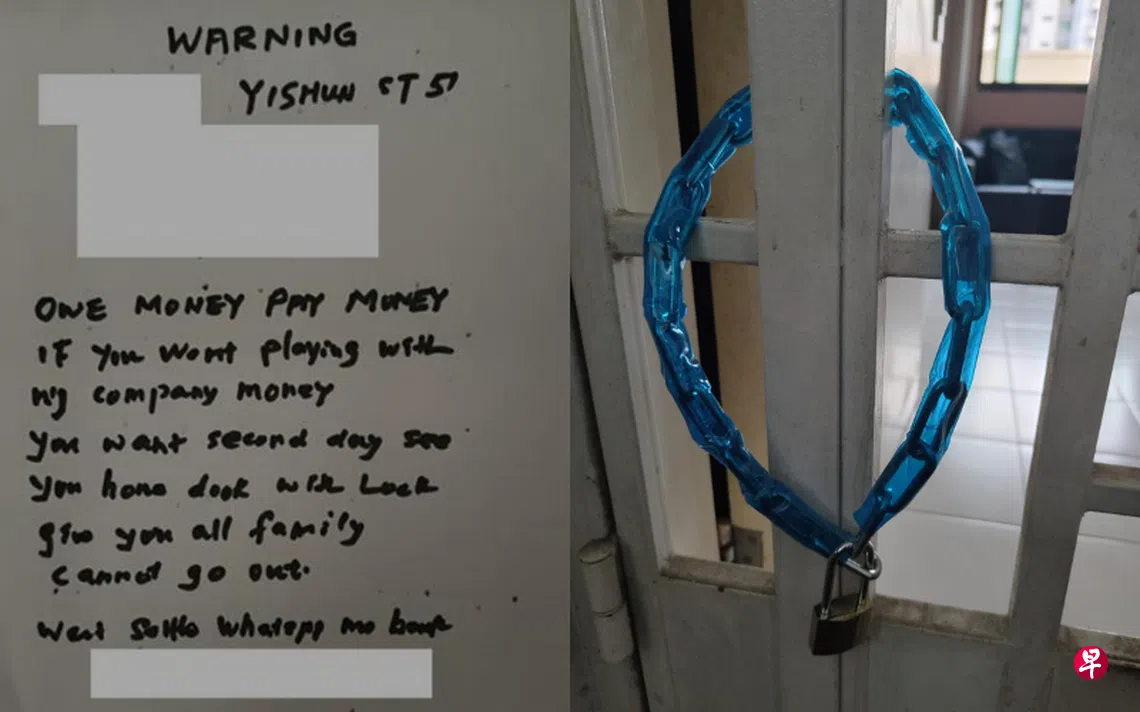 WARNING
YISHUN ST 51
OWE MONEY PAY MONEY
IF You Want playing with
my company money
You want second day see
You home door with Lock
give you all family
cannot go out.
Want Settle Whatapp me back
早